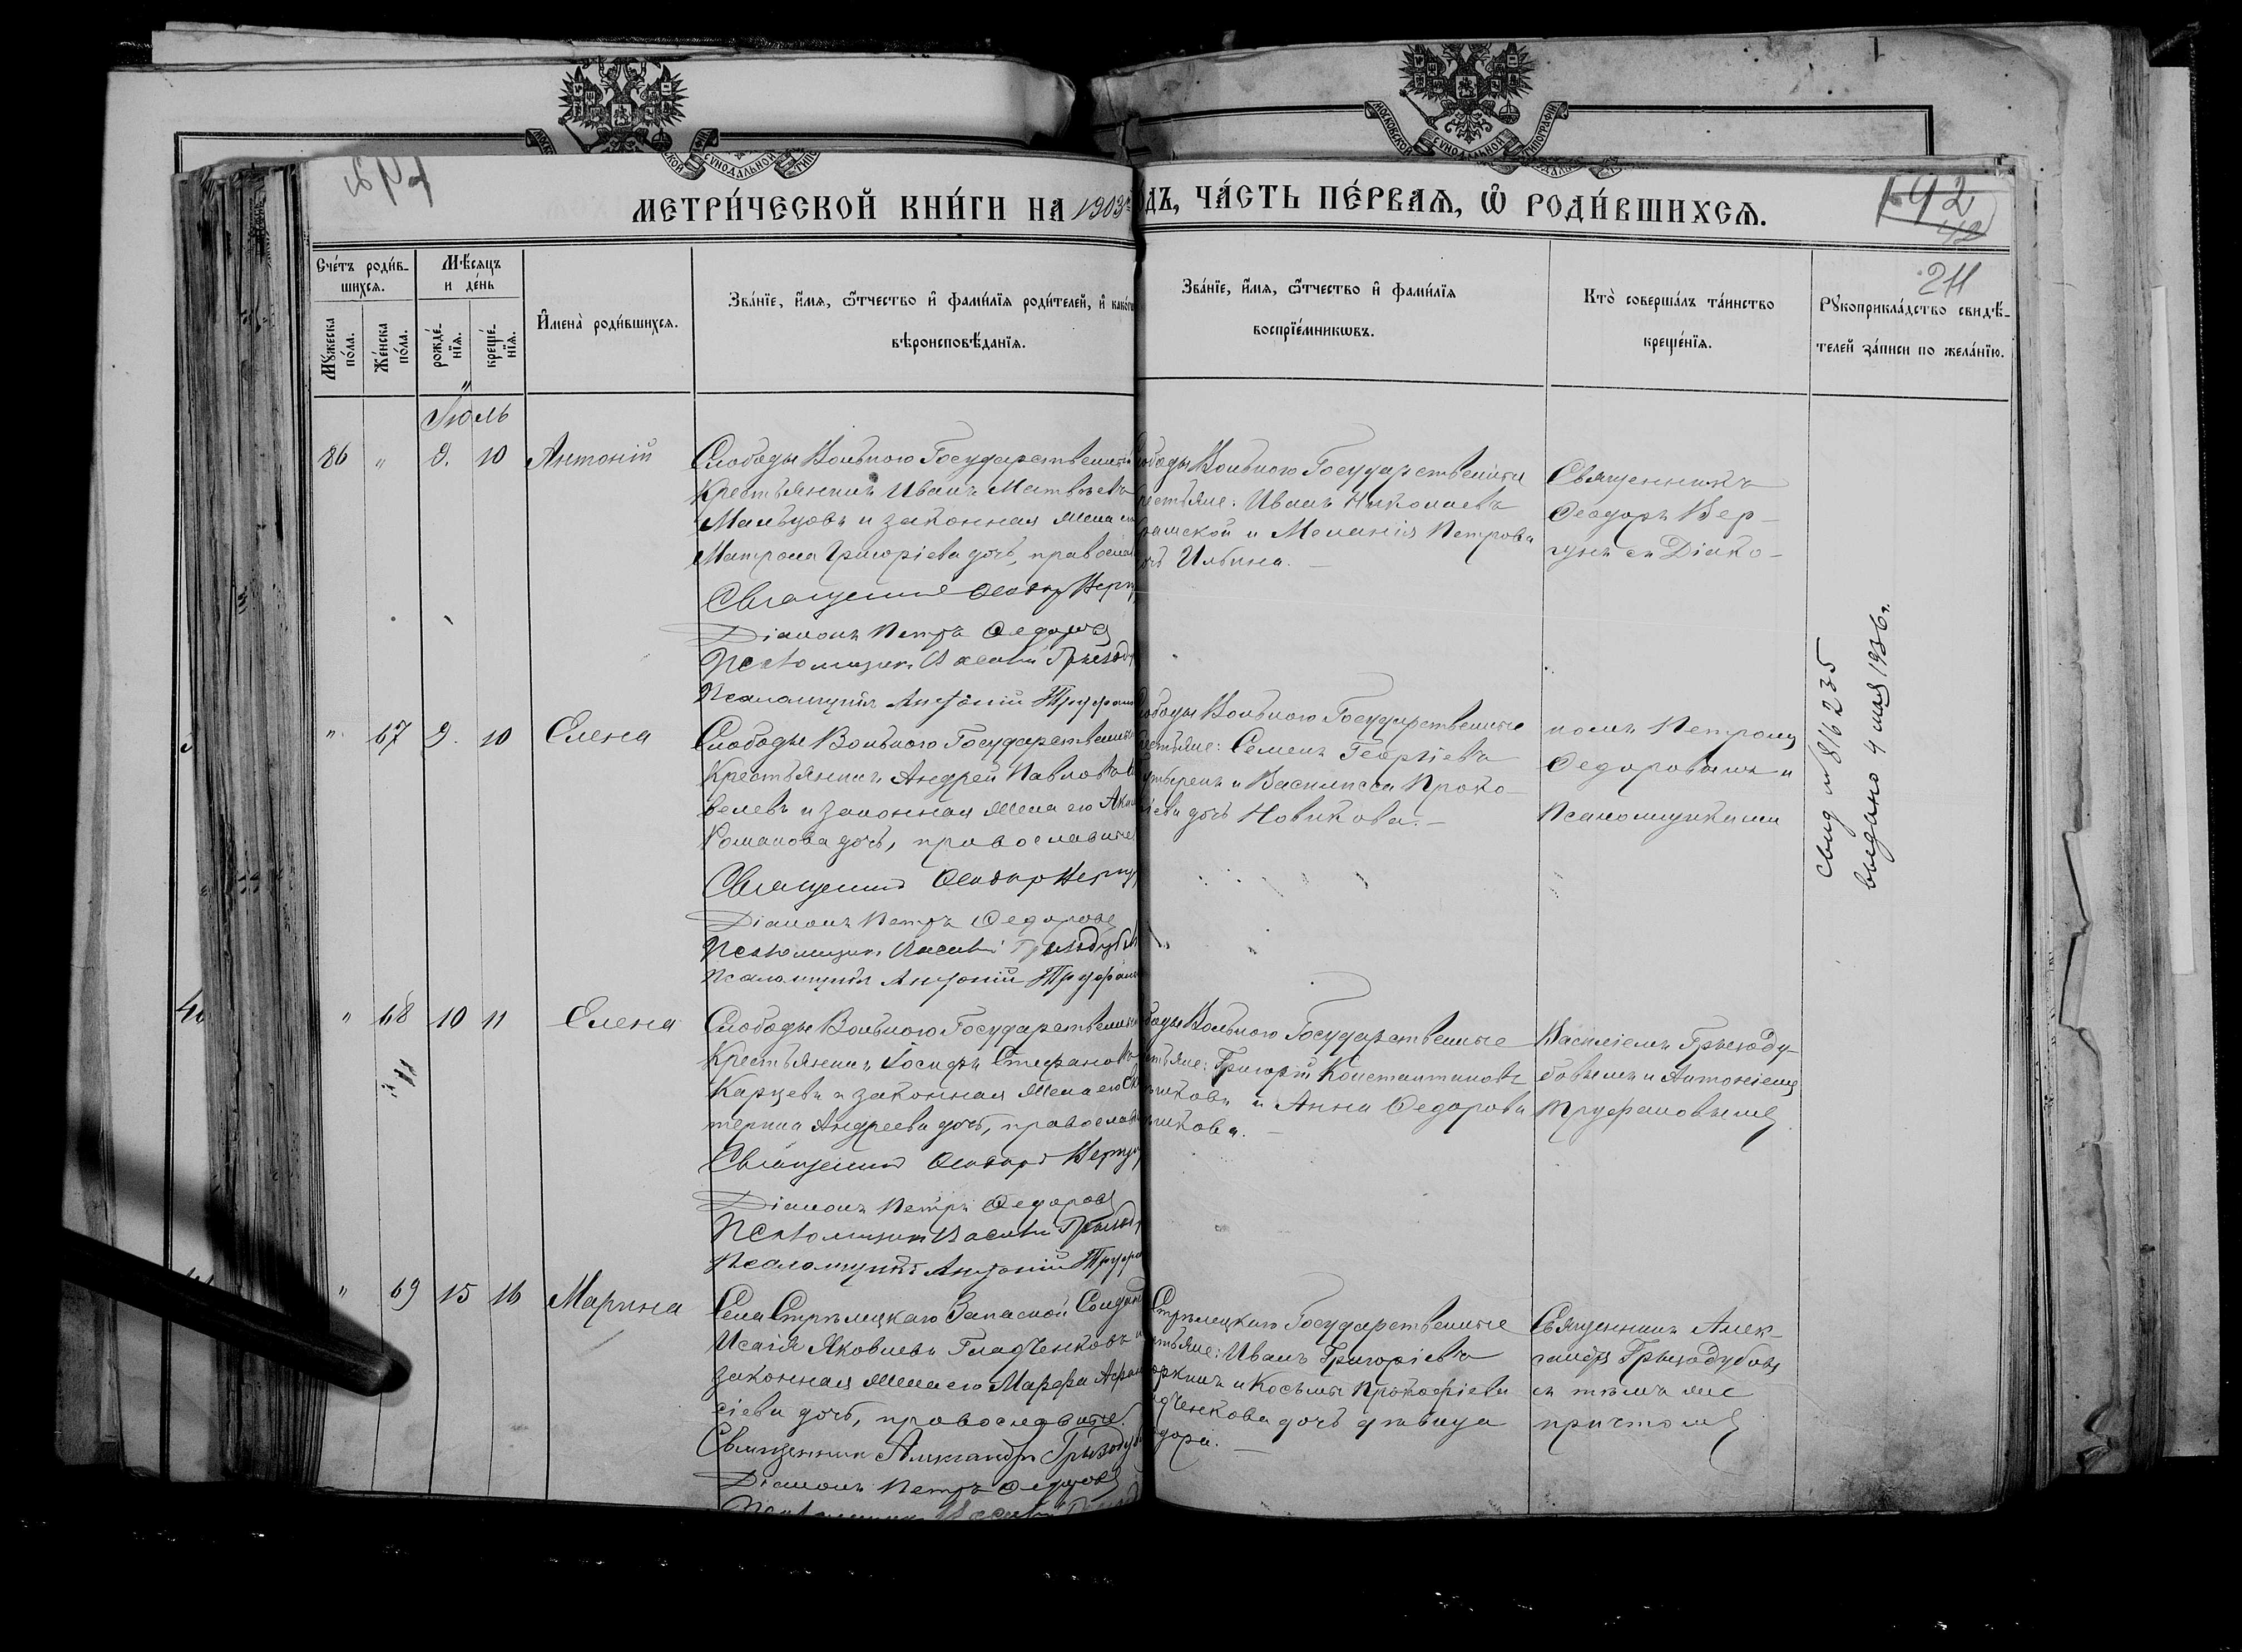 МЕТРИ́ЧЕСКОЙ КНИ́ГИ НА 1903й ГОДЪ, ЧА́СТЬ ПЕ́РВАѦ, Ѿ РОДИ́ВШИХСѦ.
92
42
211
Сче́тъ роди́в-
шихсѧ.
Мꙋ́жеска по́ла.
Же́нска по́ла.
Мѣ́сѧцъ
и де́нь
рожде́-
нїѧ.
креще́-
нїѧ.
И҆мена̀ роди́вшихсѧ.
Зва́нїе, и҆́мѧ, ѻ҆́тчество и҆ фами́лїѧ роди́телей, и҆ како́гѡ
вѣроисповѣ́данїѧ.
Зва́нїе, и҆́мѧ, ѻ҆́тчество и҆ фами́лїѧ
воспрїе́мникѡвъ.
Кто̀ соверша́лъ та́инство
креще́нїѧ.
Рꙋкоприкла́дство свидѣ́-
телей за́писи по жела́нїю.
Іюль
86 " 9. 10 Антоній
Слободы Вольнаго Государственный
Крестьянинъ Иванъ Матвѣевъ
Мальцовъ и законная жена его
Матрона Григоріева дочь, православ
Священникъ Ѳеодоръ Вергу
Діаконъ Петръ Ѳедоровъ
Псаломщикъ Василій Грызоду
Псаломщикъ Антоній Труфано
ободы Вольнаго Государственные
рестьяне: Иванъ Николаевъ
и Меланія Петрова
очь Ильина. —
Священникъ
Ѳеодоръ Вер-
гунъ съ Діако-
" 67 9. 10 Елена
Слободы Вольнаго Государственный
Крестьянинъ Андрей Павловъ
велевъ и законная жена его
Романова дочь, православные
Священникъ Ѳеодоръ Вергу
Діаконъ Петръ Ѳедоровъ
Псаломщикъ Василій Грызодубов
Псаломщикъ Антоній Труфано
ободы Вольнаго Государственные
рестьяне: Семенъ Георгіевъ
и Василисса Проко-
іева дочь Новикова. —
номъ Петромъ
Ѳедоровымъ и
Псаломщиками
свид № 816235
выдано 4 мая 1936 г.
" 68 10 11 Елена
Слободы Вольнаго Государственный
Крестьянинъ Іосифъ Стефановъ
Карцевъ и законная жена его Ека
терина Андреева дочь, православ
Священникъ Ѳеодоръ Вергу
Діаконъ Петръ Ѳедоровъ
Псаломщикъ Василій Грызод
Псаломщикъ Антоній Труфа
боды Вольнаго Государственные
стьяне: Григорій Константиновъ
и Анна Ѳедорова
Василіемъ Грызоду-
бовымъ и Антоніемъ
Труфановымъ
" 69 15 16 Марина
Села Стрѣлецкаго Запасной Солдат
Исаія Яковлевъ Гладченковъ и
законная жена его Марѳа Аѳана
сіева дочь, православные.
Священникъ Александръ Грызодуб
Діаконъ Петръ Ѳедоровъ
Стрѣлецкаго Государственные
стьяне: Иванъ Григорьевъ
и Косьмы Прокофіева
дченкова дочь дѣвица
Священникъ Алек-
сандръ Грызодубовъ
съ тѣмъ же
причтомъ